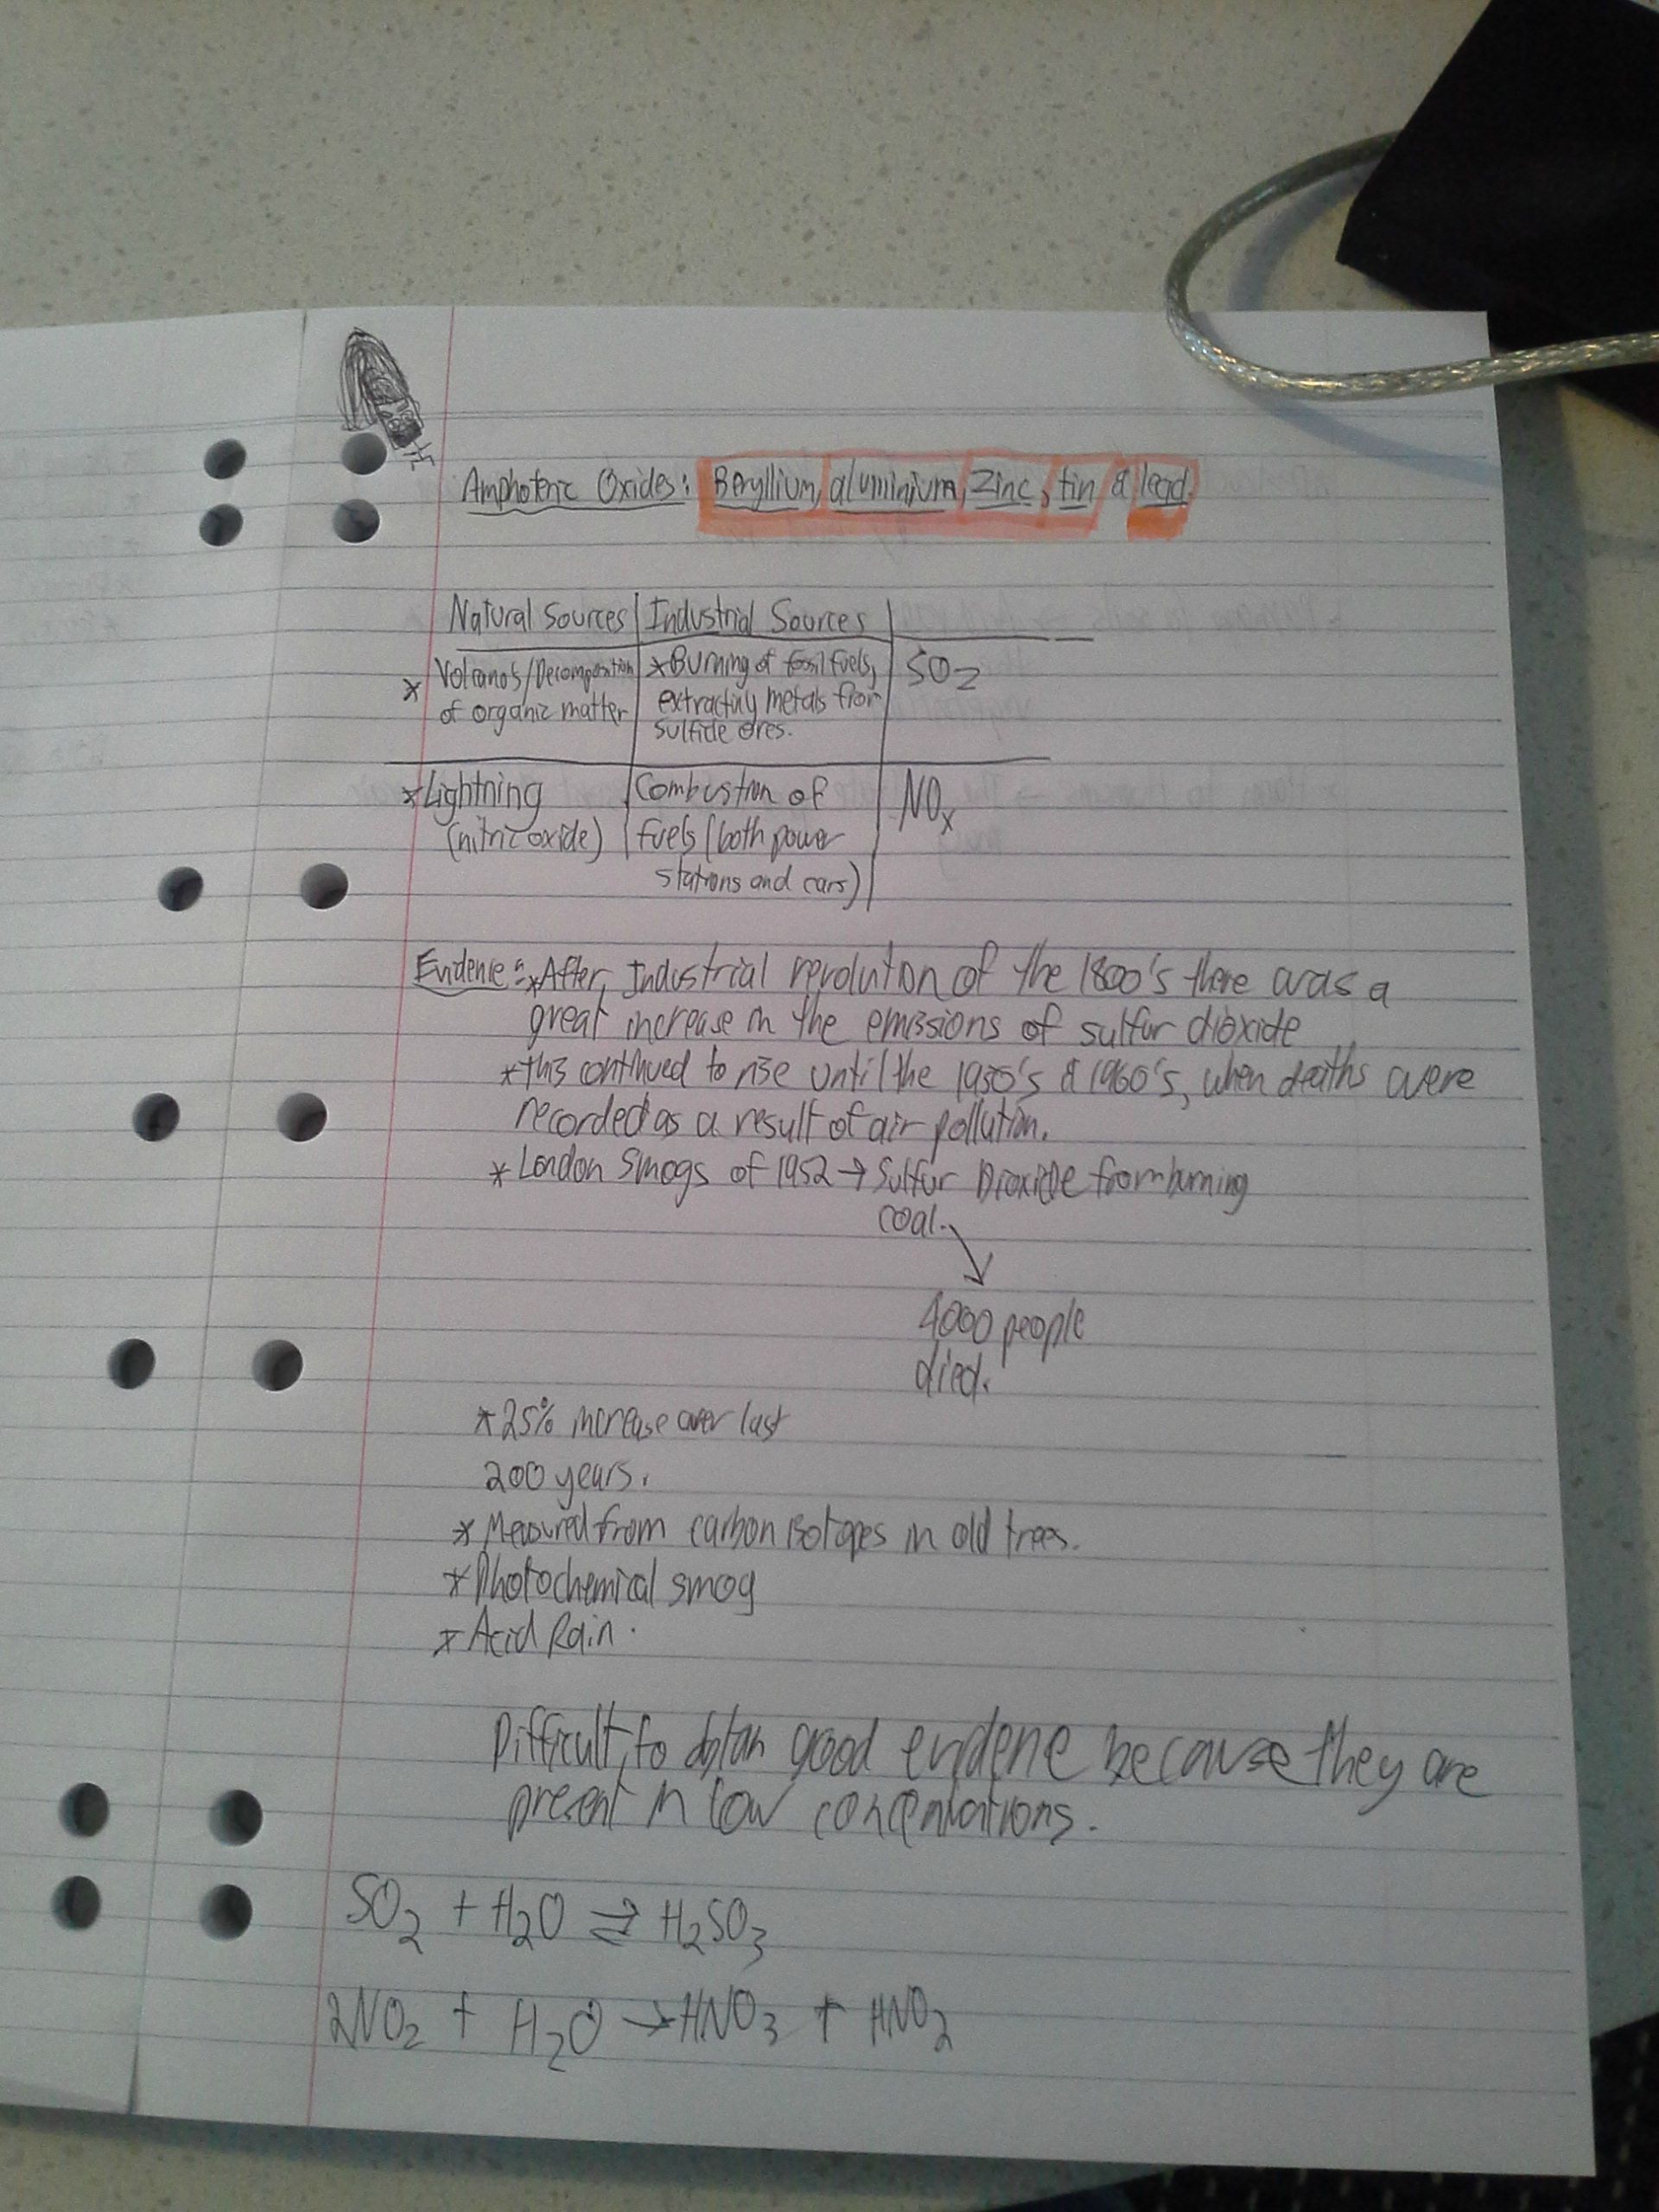 Amphoteric Oxides: Beryllium, aluminium, Zinc, tin & lead.
Natural Sources Industrial Sources
* Volcano's/Decomposition *Burning of fossil fuels, SO2
of organic matter extracting metals from
sulfide ores.
*Lightning Combustion of NOx
(nitric oxide) fuels (both power
stations and cars)
Evidence: *After Industrial revolution of the 1800's there was a
great increase in the emissions of sulfur dioxide
*this continued to rise until the 1950's & 1960's, when deaths were
recorded as a result of air pollution.
* London Smogs of 1952 → Sulfur Dioxide from burning
coal.
4000 people
died.
*25% increase over last
200 years.
* Measured from carbon isotopes in old trees.
*Photochemical smog
* Acid Rain.
Difficult to obtan good evidene because they are
present in low concentrations.
SO2 + H2O ⇌ H2SO3
2NO2 + H2O → HNO3 + HNO2